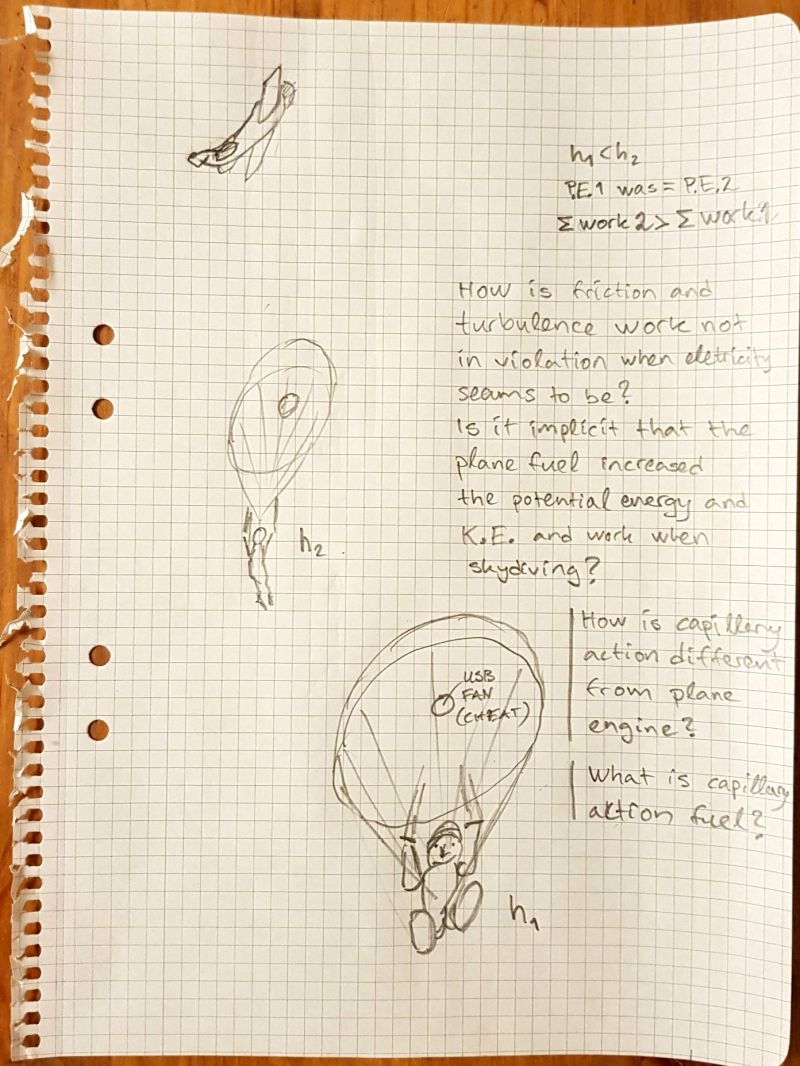 h₁ < h₂
P.E.1 was = P.E.2
Σ work 2 > Σ work 1
How is friction and
turbulence work not
in violation when eletricity
seams to be?
Is it implicit that the
plane fuel increased
the potential energy and
K.E. and work when
skydiving?
h₂
How is capillary
action different
from plane
engine?
USB
FAN
(CHEAT)
What is capillary
aktion fuel?
h₁